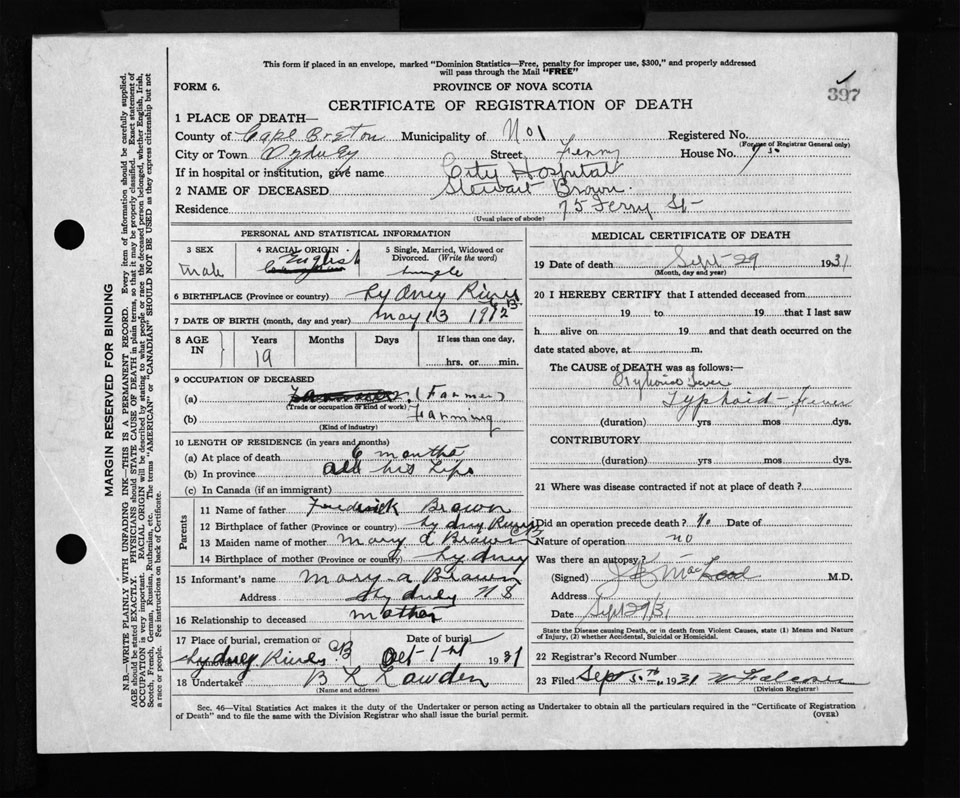 This form if placed in an envelope, marked "Dominion Statistics—Free, penalty for improper use, $300," and properly addressed
will pass through the Mail "FREE"
FORM 6.
PROVINCE OF NOVA SCOTIA
397
CERTIFICATE OF REGISTRATION OF DEATH
1 PLACE OF DEATH—
County of Cape Breton Municipality of No 1 Registered No.
(For use of Registrar General only)
City or Town Sydney Street Ferry House No. 75
If in hospital or institution, give name City Hospital
2 NAME OF DECEASED Stewart Brown
Residence 75 Ferry St
(Usual place of abode)
PERSONAL AND STATISTICAL INFORMATION
3 SEX
Male
4 RACIAL ORIGIN
English
5 Single, Married, Widowed or Divorced. (Write the word)
Single
6 BIRTHPLACE (Province or country) Sydney River
C.B.
7 DATE OF BIRTH (month, day and year) May 13 1912
8 AGE IN
Years
19
Months
Days
If less than one day,
hrs. or min.
9 OCCUPATION OF DECEASED
(a) (Farmer)
(Trade or occupation or kind of work)
(b) Farming
(Kind of industry)
10 LENGTH OF RESIDENCE (in years and months)
(a) At place of death 6 months
(b) In province all his Life
(c) In Canada (if an immigrant)
Parents
11 Name of father Fredrick Brown
12 Birthplace of father (Province or country) Sydney River
13 Maiden name of mother Mary A Brown
14 Birthplace of mother (Province or country) Sydney
15 Informant's name Mary A Brown
Address Sydney N S
16 Relationship to deceased mother
17 Place of burial, cremation or
Date of burial
Sydney River CB Oct 1st 1931
18 Undertaker B L Lowden
(Name and address)
MEDICAL CERTIFICATE OF DEATH
19 Date of death Sept 29 1931
(Month, day and year)
20 I HEREBY CERTIFY that I attended deceased from
19 to 19 that I last saw
h alive on 19 and that death occurred on
date stated above, at m.
The CAUSE of DEATH was as follows:—
Typhoid Fever
Typhoid-Fever
(duration) yrs mos dys.
CONTRIBUTORY
(duration) yrs mos dys.
21 Where was disease contracted if not at place of death?
Did an operation precede death? No Date of
Nature of operation no
Was there an autopsy?
(Signed) MacLeod M.D.
Address
Date Sept 29/31
State the Disease causing Death, or in death from Violent Causes, state (1) Means and Nature
of Injury, (2) whether Accidental, Suicidal or Homicidal.
22 Registrar's Record Number
23 Filed Sept 1931 W Falconer
(Division Registrar)
Sec. 46—Vital Statistics Act makes it the duty of the Undertaker or person acting as Undertaker to obtain all the particulars required in the "Certificate of Registration
of Death" and to file the same with the Division Registrar who shall issue the burial permit.
(OVER)
MARGIN RESERVED FOR BINDING
N.B.—WRITE PLAINLY WITH UNFADING INK—THIS IS A PERMANENT RECORD. Every item of information should be carefully supplied.
AGE should be stated EXACTLY. PHYSICIANS should STATE CAUSE OF DEATH in plain terms, so that it may be properly classified. Exact statement of
OCCUPATION is very important. RACIAL ORIGIN will be described by stating to what people or race the deceased person belonged, whether English, Irish,
Scotch, French, German, Russian, Ruthenian, etc. The terms "AMERICAN" or "CANADIAN" SHOULD NOT BE USED as they express citizenship but not
a race or people. See instructions on back of Certificate.